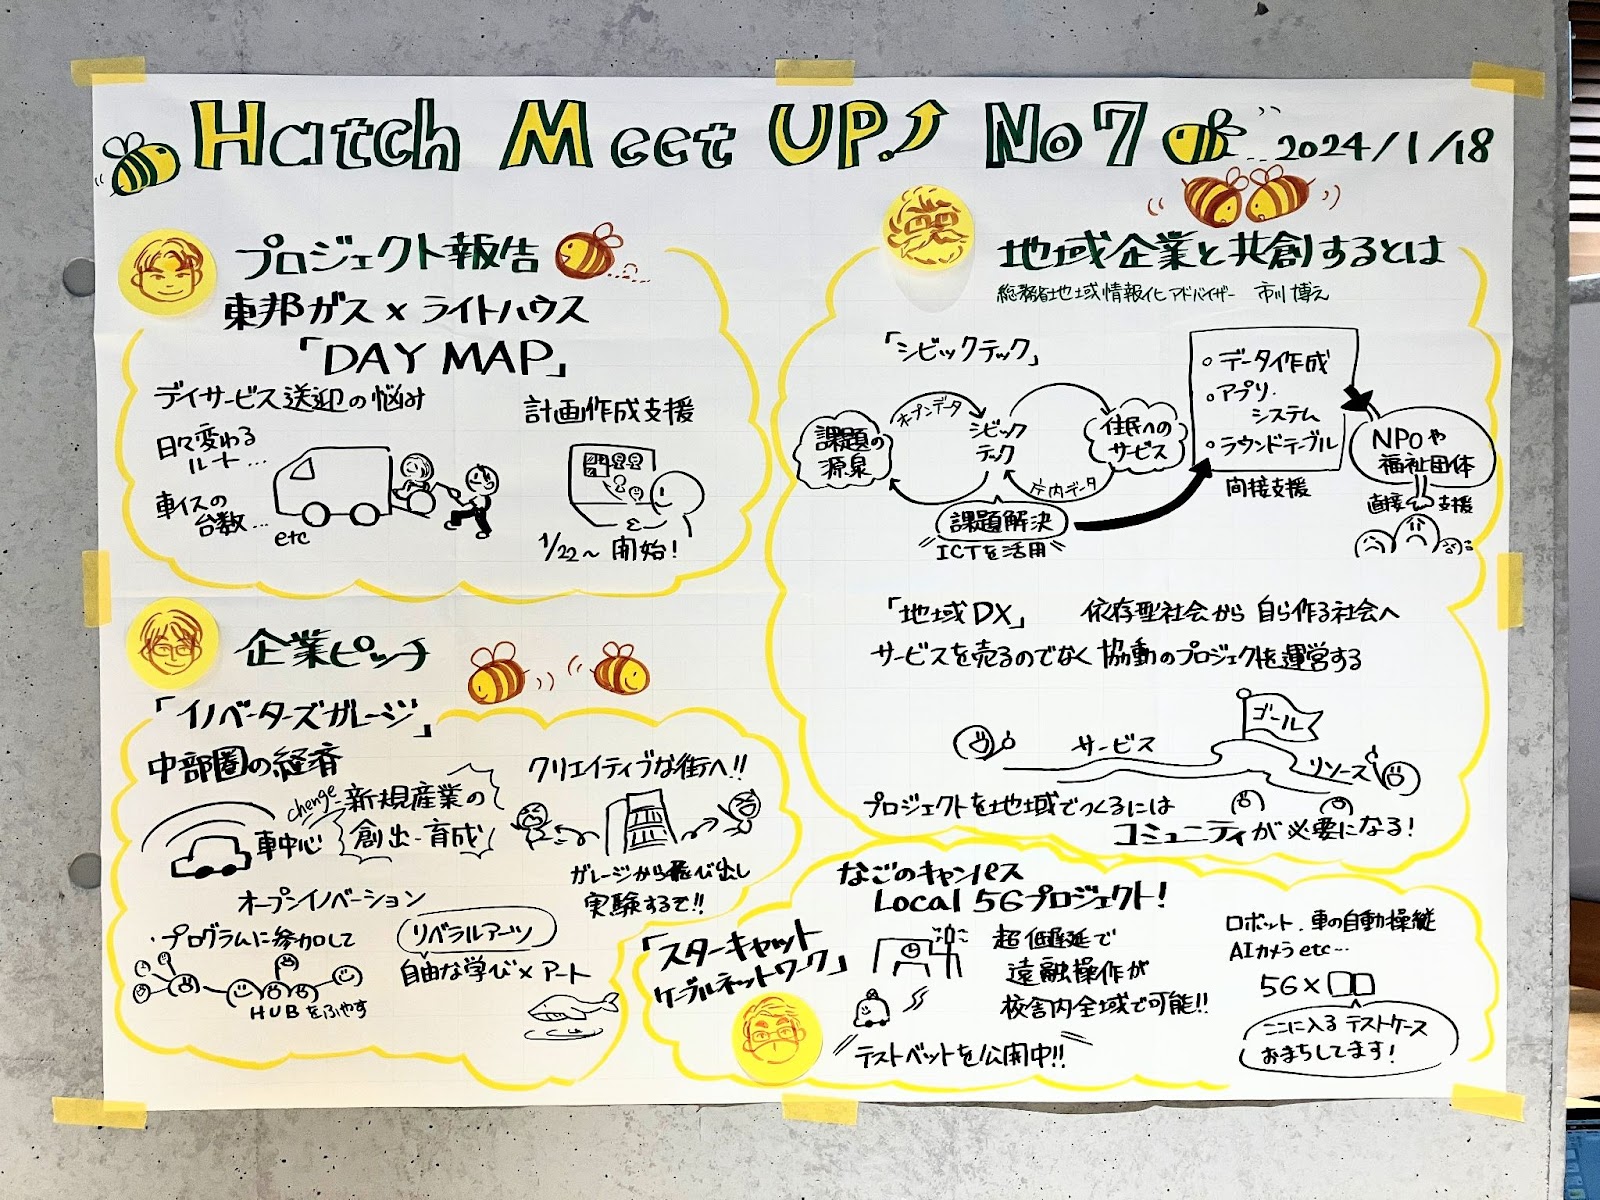 Hatch Meet UP! No 7 2024/1/18
プロジェクト報告
東邦ガス×ライトハウス
「DAY MAP」
デイサービス送迎の悩み
日々変わる
ルート…
車イスの
台数…
etc
計画作成支援
1/22～開始!
企業ピッチ
「イノベーターズガレージ」
中部圏の経済
車中心
chenge
新規産業の
創出・育成
クリエイティブな街へ!!
ガレージから飛び出し
実験するぞ!!
オープンイノベーション
・プログラムに参加して
HUBをふやす
リベラルアーツ
自由な学び×アート
地域企業と共創するとは
総務省地域情報化アドバイザー 市川博之
「シビックテック」
課題の
源泉
オープンデータ
シビック
テック
住民への
サービス
庁内データ
課題解決
ICTを活用
○データ作成
○アプリ・
システム
○ラウンドテーブル
間接支援
NPOや
福祉団体
直接支援
「地域DX」 依存型社会から自ら作る社会へ
サービスを売るのでなく協動のプロジェクトを運営する
ゴール
サービス
リソース
プロジェクトを地域でつくるには
コミュニティが必要になる!
「スターキャット
ケーブルネットワーク」
なごのキャンパス
Local 5Gプロジェクト!
超低遅延で
遠融操作が
校舎内全域で可能!!
テストベットを公開中!!
ロボット.車の自動操縦
AIカメラetc…
5G×
ここに入るテストケース
おまちしてます!